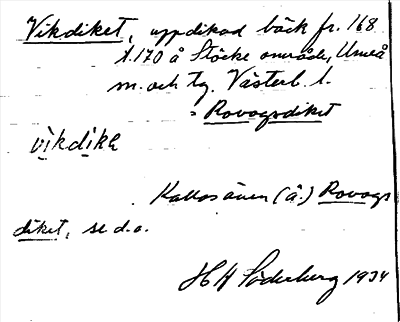 Vikdiket, uppdikad bäck fr. 168
t. 170 å Stöcke område, Umeå
m. och tg. Västerb. l.
= Rovogsdiket
vikdika
Kallas även (å.) Rovogs
diket, se d.o.
H H Söderberg 1934